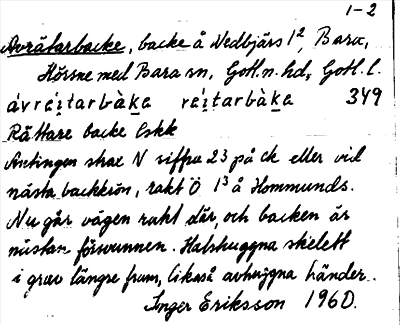 1-2
Avrätarbacke, backe å Nedbjärs 1², Bara,
Hörsne med Bara sn, Gotl. n. hd, Gotl. l.
ávréi̯tarbàka réi̯tarbàka 349
Rättare backe Eskk
Antingen strax N siffra 23 på ek eller vid
nästa backkrön, rakt Ö 1³ å Hommunds.
Nu går vägen rakt där, och backen är
nästan försvunnen. Halshuggna skelett
i grav längre fram, likaså avhuggna händer.
Inger Eriksson 1960.